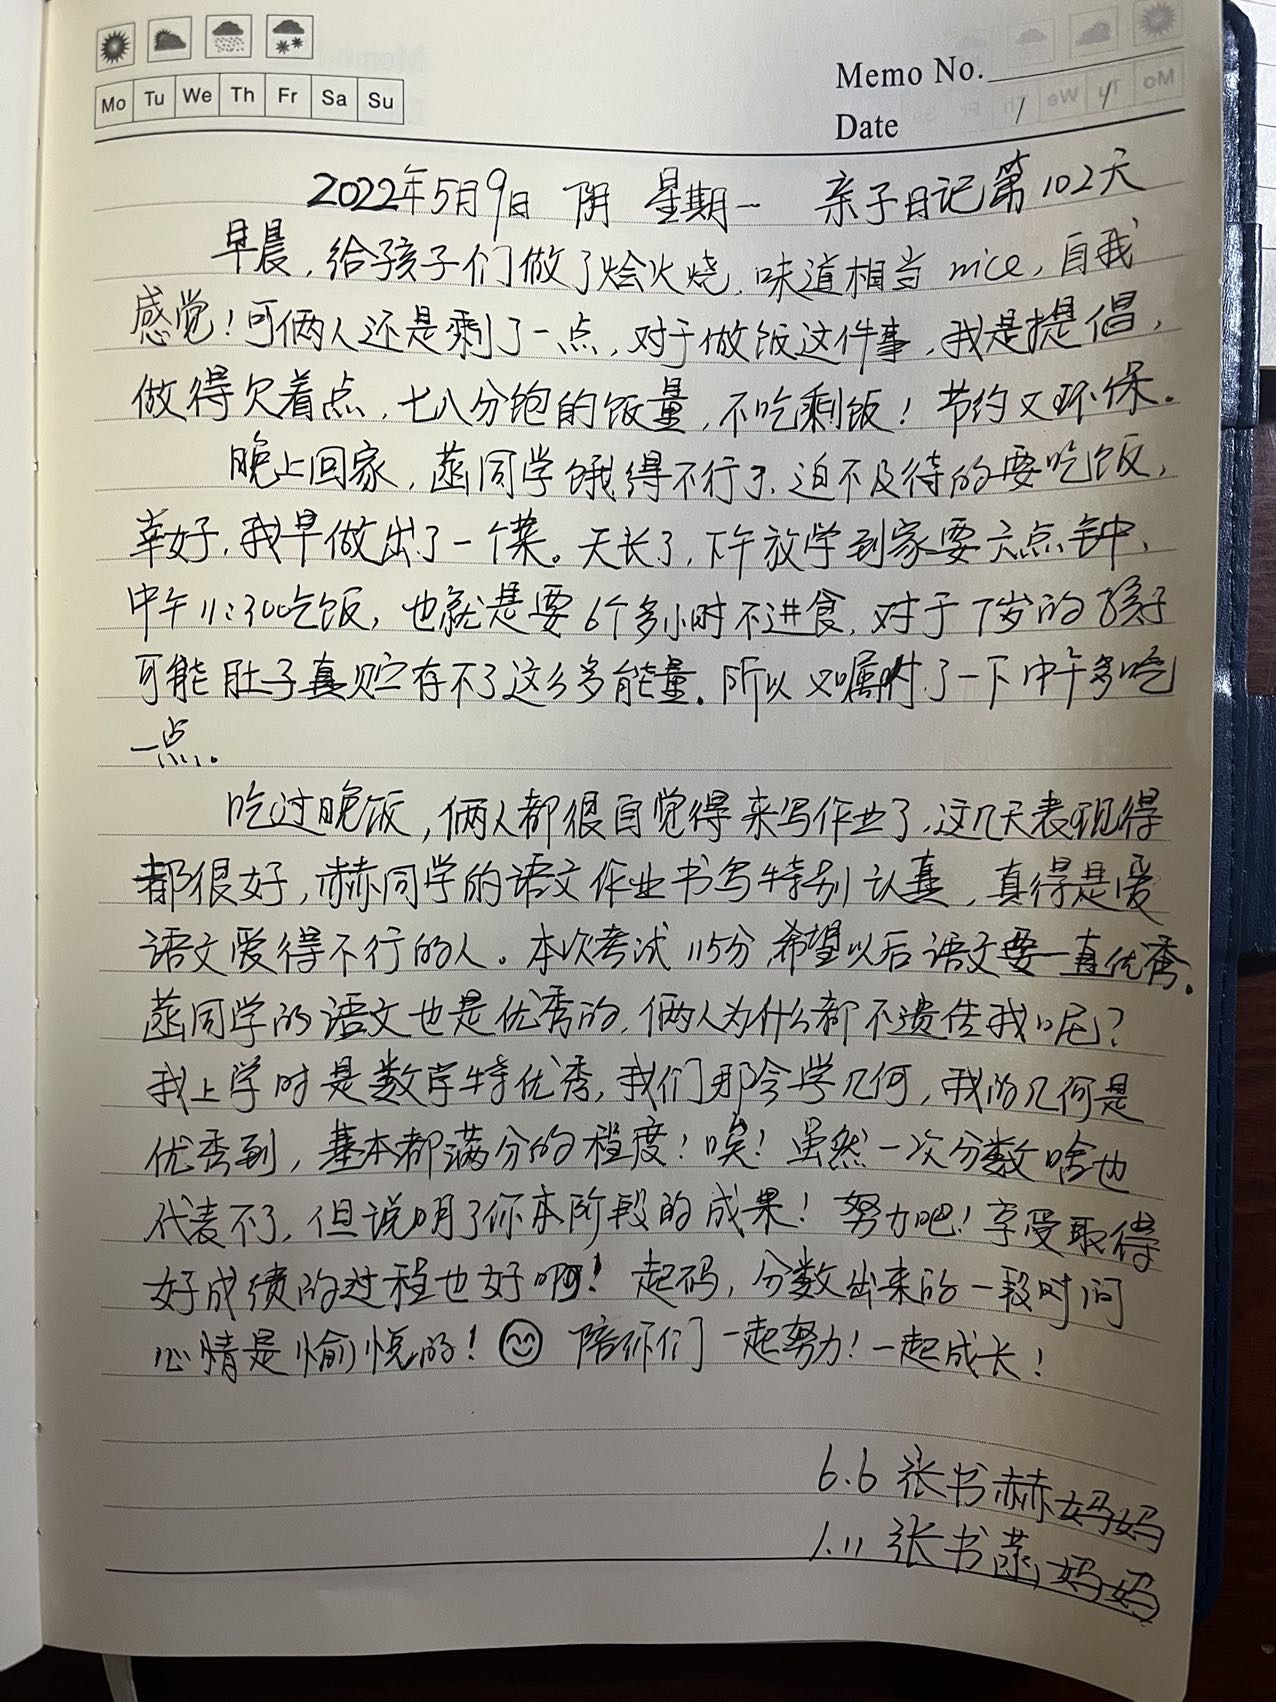 Mo Tu We Th Fr Sa Su
Memo No.
Date / /
2022年5月9日 阴 星期一 亲子日记第102天
早晨,给孩子们做了烩火烧,味道相当nice,自我
感觉!可俩人还是剩了一点,对于做饭这件事,我是提倡,
做得欠着点,七八分饱的饭量,不吃剩饭!节约又环保。
晚上回家,菡同学饿得不行了,迫不及待的要吃饭,
幸好,我早做出了一个菜。天长了,下午放学到家要六点钟,
中午11:30吃饭,也就是要6个多小时不进食,对于7岁的孩子
可能肚子真贮存不了这么多能量。所以又嘱咐了一下中午多吃
一点。
吃过晚饭,俩人都很自觉得来写作业了,这几天表现得
都很好,赫同学的语文作业书写特别认真,真得是爱
语文爱得不行的人。本次考试115分,希望以后语文要一直优秀。
菡同学的语文也是优秀的,俩人为什么都不遗传我呢?
我上学时是数学特优秀,我们那会学几何,我的几何是
优秀到,基本都满分的程度!唉!虽然一次分数啥也
代表不了,但说明了你本阶段的成果!努力吧!享受取得
好成绩的过程也好啊!起码,分数出来的一段时间
心情是愉悦的!😊 陪你们一起努力!一起成长!
6.6 张书赫妈妈
1.11 张书菡妈妈